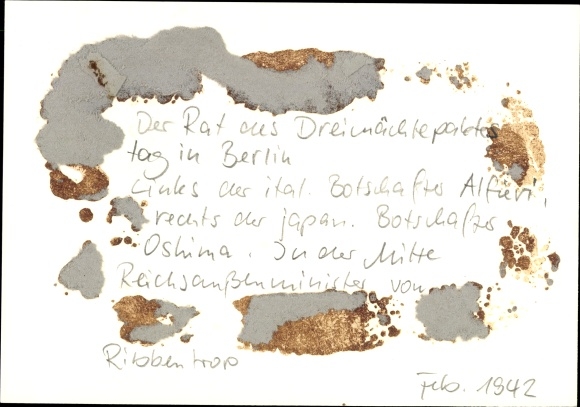 Der Rat des Dreimächtepaktes
tag in Berlin
Links der ital. Botschafter Alfieri,
rechts der japan. Botschafter
Oshima. In der Mitte
Reichsaußenminister von
Ribbentrop
Feb. 1942